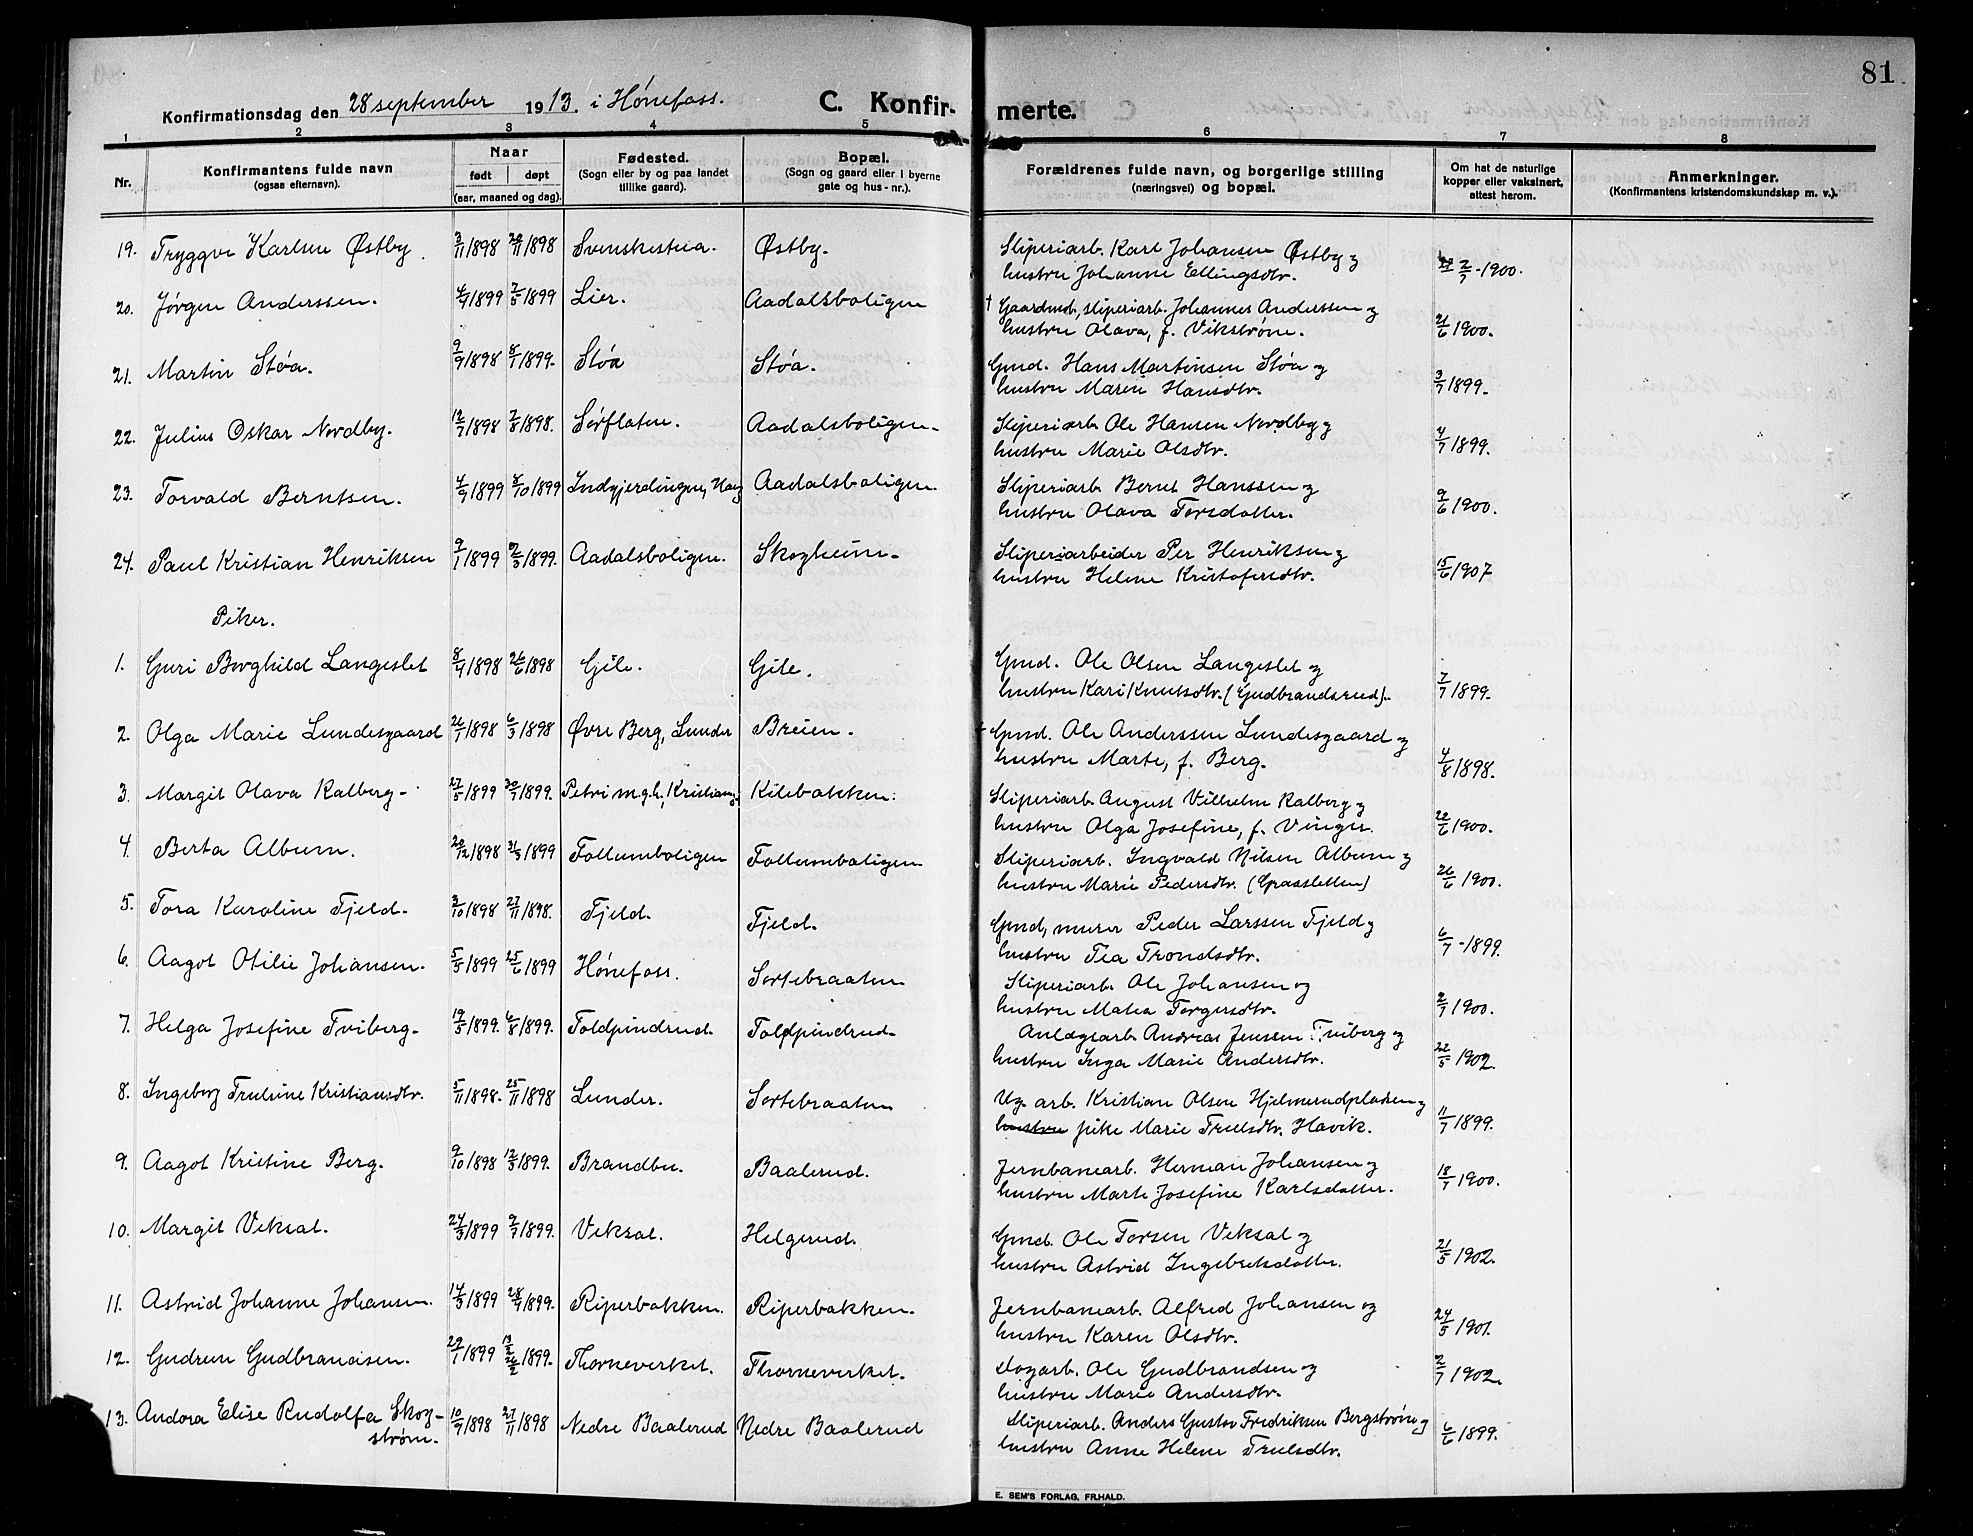 81
Konfirmationsdag den 28 september 1913. i Hønefoss. C. Konfirmerte.
1 2 3 4 5 6 7 8
Nr. Konfirmantens fulde navn (ogsaa efternavn). Naar født døpt (aar, maaned og dag). Fødested. (Sogn eller by og paa landet tillike gaard). Bopæl. (Sogn og gaard eller i byerne gate og hus-nr.). Forældrenes fulde navn, og borgerlige stilling (næringsvei) og bopæl. Om hat de naturlige kopper eller vaksinert, attest herom. Anmerkninger. (Konfirmantens kristendomskundskap m. v.).
19. Tryggve Karlsen Østby. 3/11 1898 20/11 1898 Svenskestua. Østby. Sliperiarb. Karl Johansen Østby og
hustru Johanne Ellingsdtr. 2/7-1900.
20. Jørgen Anderssen. 4/4 1899 7/5 1899 Lier. Aadalsboligen † Gaardmd, sliperiarb. Johannes Anderssen og
hustru Olava, f. Vikstrøm. 21/6 1900.
21. Martin Støa. 9/9 1898 8/1 1899. Støa Støa. Gmd. Hans Martinsen Støa og
hustru Maren Hansdtr. 3/7 1899.
22. Julius Oskar Nordby. 12/7 1898 7/8 1898. Sørflaten. Aadalsboligen. Sliperiarb. Ole Hansen Nordby og
hustru Marie Olsdtr. 4/7 1899.
23. Torvald Berntsen. 4/9 1899 8/10 1899 Indgjerdingen, Haug Aadalsboligen. Sliperiarb. Bernt Hanssen og
hustru Olava Torsdatter. 9/6 1900.
24. Paul Kristian Henriksen 9/1 1899 2/3 1899. Aadalsboligen. Skogheim. Sliperiarbeider Per Henriksen og
hustru Helene Kristofersdtr. 15/6 1907
Piker.
1. Guri Borghild Langeslet 8/4 1898 26/6 1898 Gile. Gile. Gmd. Ole Olsen Langeslet og
hustru Kari Knutsdtr. (Gudbrandsrud). 7/7 1899.
2. Olga Marie Lundesgaard 26/1 1898 6/3 1898 Øvre Berg, Lunder Breien. Gmd. Ole Anderssen Lundesgaard og
hustru Marte, f. Berg. 4/8 1898.
3. Margit Olava Kalberg. 27/5 1899 30/7 1899. Petri mgh., Kristiania Kilebakken. Sliperiarb. August Vilhelm Kalberg og
hustru Olga Josefine, f. Vinger. 20/6 1900.
4. Berta Album. 20/12 1898 31/3 1899 Follumboligen Follumboligen Sliperiarb. Ingvald Nilsen Album og
hustru Marie Pedersdtr. (Grassletten) 26/6 1900.
5. Tora Karoline Fjeld. 3/10 1898 27/11 1898. Fjeld. Fjeld. Gmd, murer Peder Larssen Fjeld og
hustru Tea Trondsdtr. 6/7-1899.
6. Aagot Otilie Johansen. 5/5 1899 25/6 1899 Hønefoss. Sortebraaten. Sliperiarb. Ole Johansen og
hustru Matea Torgersdtr. 2/7 1900.
7. Helga Josefine Tviberg. 19/5 1899. 6/8 1899. Toldpindrud. Toldpindrud. Anlægsarb. Andreas Jensen Tviberg og
hustru Inga Marie Andersdtr. 22/5 1902.
8. Ingeborg Trulsine Kristiansdtr. 5/11 1898. 25/11 1898 Lunder. Sortebraaten Ug. arb. Kristian Olsen Hjelmerudpladsen og
hustru pike Marie Trulsdtr. Havik. 11/7 1899.
9. Aagot Kristine Berg. 9/10 1898 12/3 1899. Brandbu. Baalerud. Jernbanearb. Herman Johansen og
hustru Marte Josefine Karlsdatter. 18/7 1900.
10. Margit Veksal. 24/3 1899 9/7 1899. Veksal. Helgerud. Gmd. Ole Torsen Veksal og
hustru Astrid Ingebretsdatter. 21/5 1902.
11. Astrid Johanne Johansen. 14/3 1899 28/4 1899. Riperbakken. Riperbakken. Jernbanearb. Alfred Johansen og
hustru Karen Olsdtr. 24/5 1901.
12. Gudrun Gudbrandsen. 29/1 1899 1899. Thorneverket. Thorneverket. Dagarb. Ole Gudbrandsen og
hustru Marie Andersdtr. 2/7 1902.
13. Andora Elise Rudolfa Skog-
strøm. 10/9 1898 27/11 1898 Nedre Baalerud Nedre Baalerud Sliperiarb. Anders Gustav Fredriksen Bergstrøm og
hustru Anne Helene Trulsdtr. 6/6 1899.
E. SEM'S FORLAG, FR.HALD.